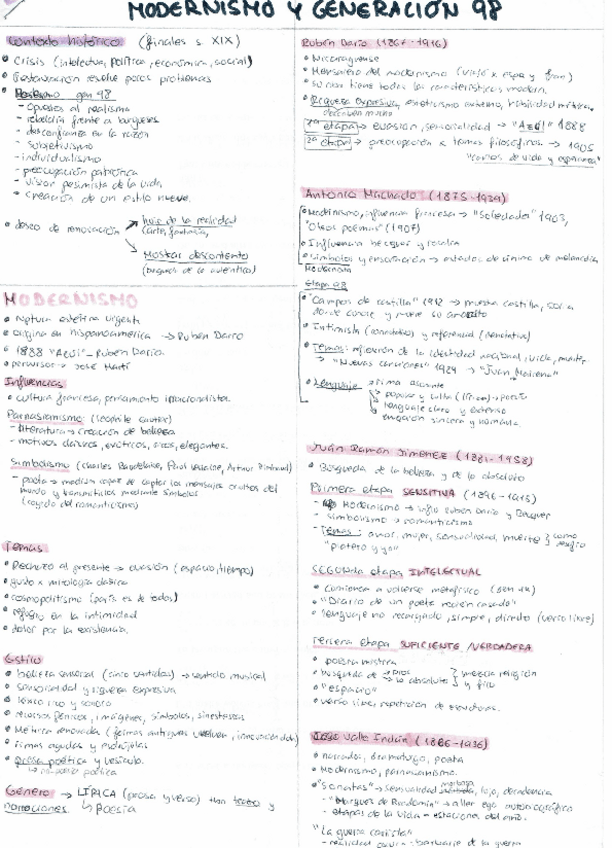 MODERNISMO Y GENERACIÓN 98
Contexto histórico (finales s. XIX)
• Crisis (intelectual, política, económica, social)
• Restauración resuelve pocos problemas
gen 98
- Opuestos al realismo
- rebeldía frente a burgueses
- desconfianza en la razón
- subjetivismo
- individualismo
- preocupación patriótica
- visión pesimista de la vida
- Creación de un estilo nuevo.
• deseo de renovación
huir de la realidad
(arte, fantasía,
Mostrar descontento
(búsqueda de lo auténtico)
MODERNISMO
• ruptura estética urgente
• origina en hispanoamerica → Rubén Darío
• 1888 "Azul" - Rubén Darío.
• precursor → José Martí
Influencias
• cultura francesa, pensamiento irracionalistas.
Parnasianismo (Teophile Gautier)
- literatura → creación de belleza
- motivos clásicos, exóticos, elegantes.
Simbolismo (Charles Baudelaire, Paul Verlaine, Arthur Rimbaud)
- poeta → medium capaz de captar los mensajes ocultos del
mundo y transmitirlos mediante símbolos
(cogido del romanticismo)
Temas
• Rechazo al presente → evasión (espacio, tiempo)
• gusto x mitología clásica
• cosmopolitismo (París es de todos)
• refugio en la intimidad
• dolor por la existencia.
Estilo
• belleza sensorial (cinco sentidos) → sentido musical
• sensorialidad y riqueza expresiva
• léxico rico y sonoro
• recursos fónicos, imágenes, símbolos, sinestesias
• Métrica renovada (formas antiguas vuelven, innovación
• rimas agudas y esdrújulas
• prosa poética y
Género → LÍRICA (prosa y verso) teatro y
narraciones. ↳ poesía
Rubén Darío (1867-1916)
• Nicaraguense
• Mensajero del modernismo (viajó x espa y fran)
• su obra tiene todas las características modern.
• Riqueza expresiva, esteticismo extremo, habilidad métrica
1ª etapa → evasión, sensorialidad → "Azul" 1888
2ª etapa → preocupación x temas filosóficos. → 1905
"Cantos de vida y esperanza"
Antonio Machado (1875-1939)
• Modernismo, influencia francesa → "Soledades" 1903,
"Otros poemas" (1907)
• Influencia becquer y rosalía
• Símbolos y ensoñación → estados de ánimo de melancolía
Modernista
Etapa 98
• "Campos de castilla" 1912 → muestra castilla, soria
donde conoce y muere su
• Intimista (connotativo) y referencial (denotativo)
• Temas: reflexión de la identidad nacional, vida, muerte
→ "Nuevas canciones" 1924 → "Juan Mairena"
• Lenguaje → rima asonante
popular y culto
lenguaje claro y extenso
emoción sincera y humana.
Juan Ramón Jiménez (1881-1958)
• Búsqueda de la belleza y de lo absoluto
Primera etapa SENSITIVA (1896-1915)
- Modernismo → influ Rubén Darío y Becquer
- simbolismo → romanticismo
- Temas: amor, mujer, sensualidad, muerte
"platero y yo"
SEGUNDA etapa INTELECTUAL
• comienza a volverse metafísico
• "Diario de un poeta recién casado"
• lenguaje no recargado, simple, directo (verso libre)
Tercera etapa SUFICIENTE / VERDADERA
• poesía mística
• búsqueda de → Dios
→ lo absoluto
mezcla religión
• "espacio"
• verso libre, repetición de estructuras.
Valle Inclán (1866-1936)
• narrador, dramaturgo, poeta
• Modernismo, parnasianismo.
• "Sonatas" → sensualidad lujo, decadencia
- "Marqués de Bradomín" → alter ego autobiográfico
- etapas de la vida - estaciones del año.
"La guerra carlista"
- barbarie de la guerra